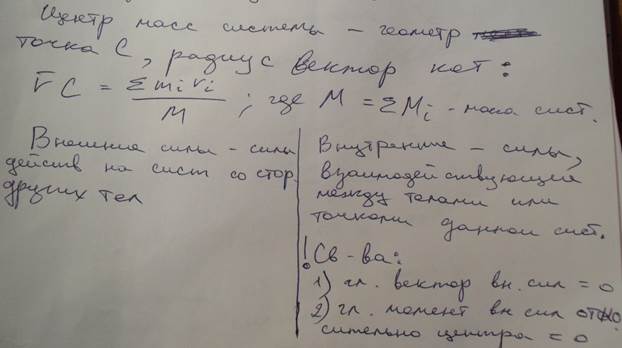 Центр масс системы – геометр
точка С, радиус вектор кот:
r̄ C = Σmᵢ rᵢ / M ; где M = ΣMᵢ - масса сист.
Внешние силы - силы
действ на сист со стор.
других тел
Внутренние - силы,
взаимодействующие
между телами или
точками данной сист.
! Св-ва:
1) гл. вектор вн. сил = 0
2) гл. момент вн сил отно
сительно центра = 0